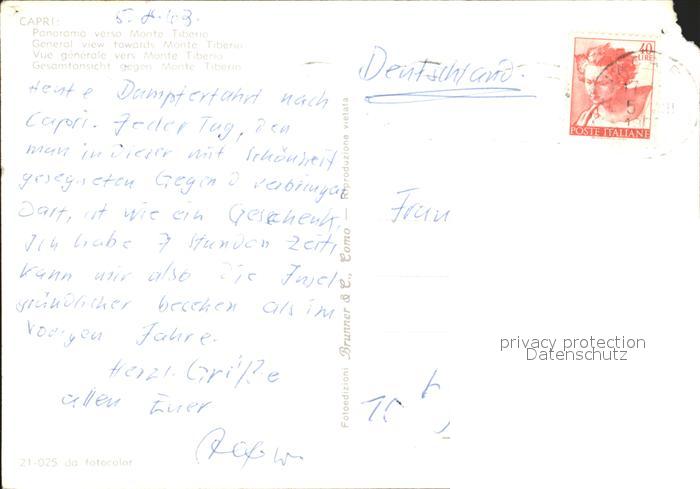 CAPRI:
Panorama verso Monte Tiberio
General view towards Monte Tiberio
Vue générale vers Monte Tiberio
Gesamtansicht gegen Monte Tiberio
Heute Dampferfahrt nach
Capri. Jeder Tag, den
man in dieser mit Schönheit
gesegneten Gegend verbringen
darf, ist wie ein Geschenk.
Ich habe 7 Stunden Zeit,
kann mir also die Insel
gründlicher besehen als im
vorigen Jahre.
Herzl. Grüße
allen Euer
21-025 da fotocolor
Fotoedizioni Brunner & C., Como — Riproduzione vietata
Deutschland.
40
LIRE
POSTE ITALIANE
privacy protection
Datenschutz